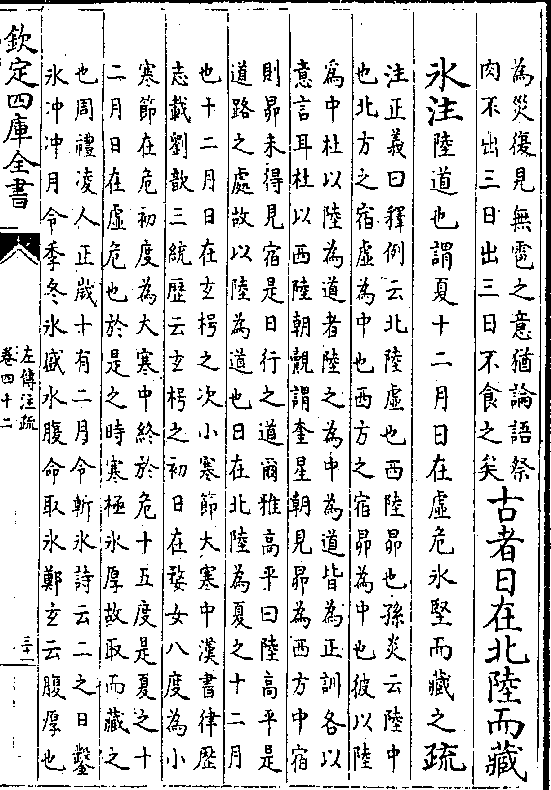 為災復見無雹之意猶論語祭
肉不出三日出三日不食之矣
古者日在北陸而藏
氷注陸道也謂夏十二月日在虛危氷堅而藏之疏
注正義曰釋例云北陸虛也西陸昴也孫炎云陸中
也北方之宿虛為中也西方之宿昴為中也彼以陸
為中杜以陸為道者陸之為中為道皆為正訓各以
意言耳杜以西陸朝覿謂奎星朝見昴為西方中宿
則昴未得見宿是日行之道爾雅高平曰陸高平是
道路之處故以陸為道也日在北陸為夏之十二月
也十二月日在玄枵之次小寒節大寒中漢書律歷
志載劉歆三統歷云玄枵之初日在婺女八度為小
寒節在危初度為大寒中終於危十五度是夏之十
二月日在虛危也於是之時寒極氷厚故取而藏之
也周禮凌人正歲十有二月令斬氷詩云二之日鑿
氷沖沖月令季冬氷盛水腹命取氷鄭玄云腹厚也
欽定四庫全書
左傳注疏
卷四十二